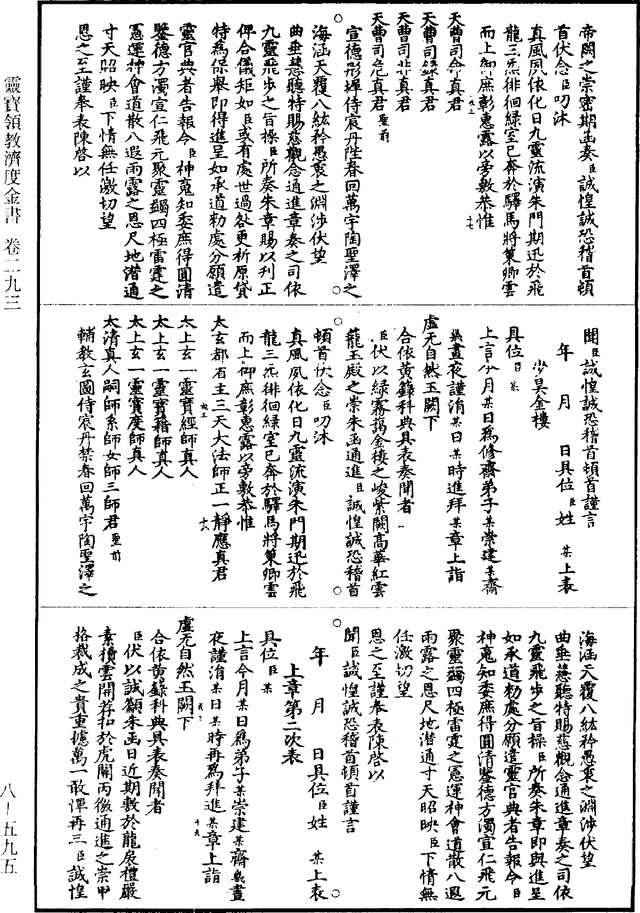 靈寶領教濟度金書 卷二九三
八-五九五
帝闕之崇密期函奏臣誠惶誠恐稽首頓
首伏念臣叨沐
真風夙依化日九靈流演朱門期迅於飛
龍三炁徘徊綠室已奔於驛馬將策卿雲
而上御庶彰惠露以旁敷恭惟
天曹司命真君
天曹司錄真君
天曹司非真君
天曹司危真君
宣德彤墀侍宸丹陛春回萬宇陶聖澤之
海涵天覆八紘矜愚衷之淵涉伏望
曲垂慈聽特賜慈觀念通進章奏之司依
九靈飛步之旨操臣所奏朱章賜以刊正
俾合儀矩如臣或有處世過咎更祈原貸
特為保舉即得進呈如承道勑處分願遣
靈官典者告報今臣神䰟知委庶得圓清
鑒德方濁宣仁飛元聚靈蠲四極雷霆之
憲運神會道散八遐雨露之恩尺地潛通
寸天昭映臣下情無任激切望
恩之至謹奉表陳啓以
聞臣誠惶誠恐稽首頓首謹言
年 月 日具位臣姓 某上表
少昊金樓
具位臣某
上言今月某日為修齋弟子某崇建某齋
幾晝夜謹涓某日某時進拜某章上詣
虛无自然玉闕下
合依黃籙科典具表奏聞者
臣伏以綠霧揭金樓之峻紫闕高華紅雲
籠玉殿之崇朱函通進臣誠惶誠恐稽首
頓首伏念臣叨沐
真風夙依化日九靈流演朱門期迅於飛
龍三炁徘徊綠室已奔於驛馬將策卿雲
而上御庶彰惠露以旁敷恭惟
太玄都省主三天大法師正一靜應真君
太上玄一靈寶經師真人
太上玄一靈寶籍師真人
太上玄一靈寶度師真人
太清真人嗣師系師女師三師君
輔教玄圖侍宸丹禁春回萬宇陶聖澤之
海涵天覆八紘矜愚衷之淵涉伏望
曲垂慈聽特賜慈觀念通進章奏之司依
九靈飛步之旨操臣所奏朱章即與進呈
如承道勑處分願遣靈官典者告報今臣
神䰟知委庶得圓清鑒德方濁宣仁飛元
聚靈蠲四極雷霆之憲運神會道散八遐
雨露之恩尺地潛通寸天昭映臣下情無
任激切望
恩之至謹奉表陳啓以
聞臣誠惶誠恐稽首頓首謹言
年 月 日具位臣姓 某上表
上章第二次表
具位臣某
上言今月某日為弟子某崇建某齋幾晝
夜謹涓某日某時再為拜進某章上詣
虛无自然玉闕下
合依黃籙科典具表奏聞者
臣伏以誠顒朱函日近期敷於龍扆禮嚴
素積雲開荐扣於虎闈丙徹通進之崇甲
格裁成之貴重攄萬一敢憚再三臣誠惶